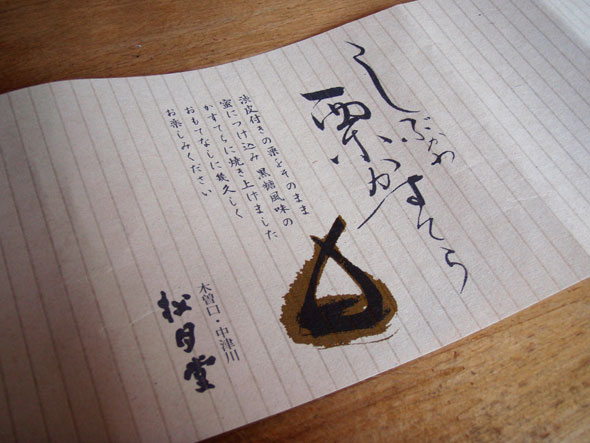 しぶかわ
栗かすてら
渋皮付きの栗をそのまま
蜜につけ込み 黒糖風味の
かすてらに焼き上げました
おもてなしに幾久しく
お楽しみください
木曽口・中津川
松月堂